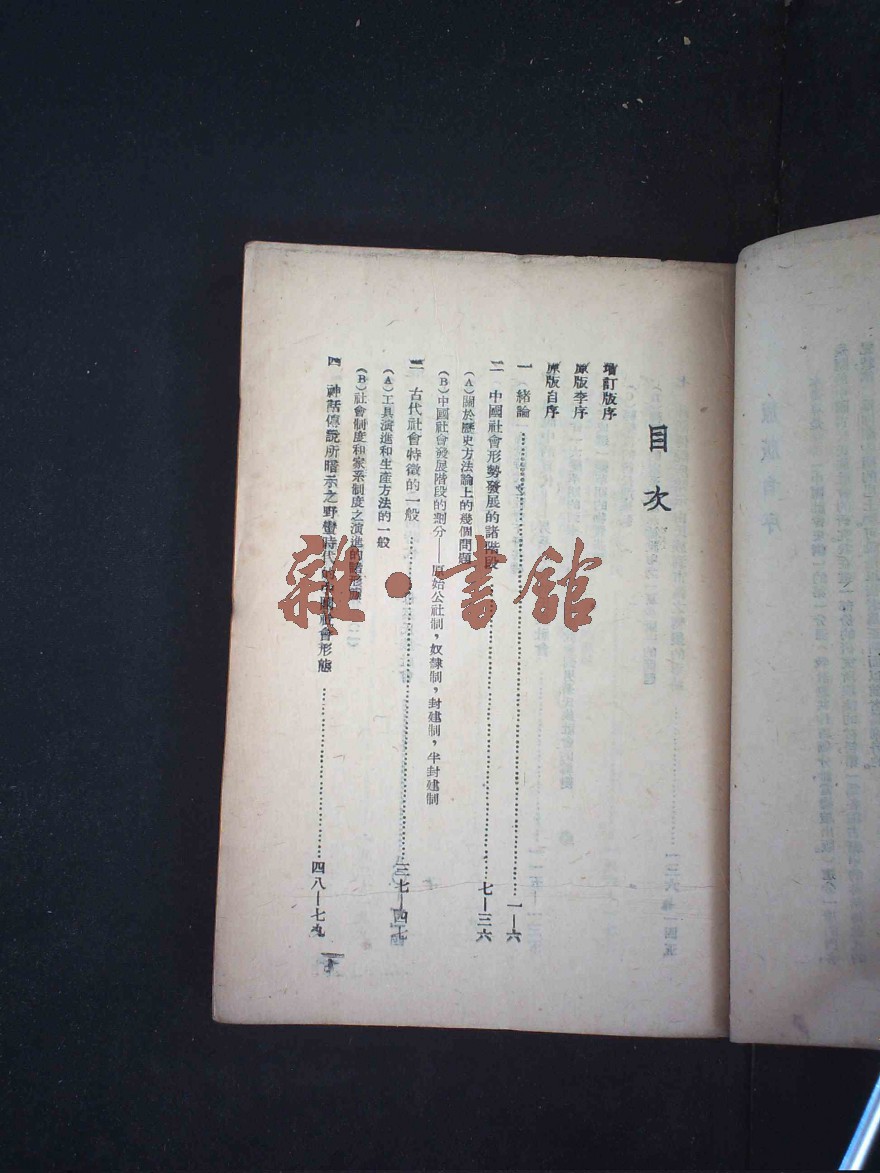 目次
增訂版序
原版李序
原版自序
一 緒論……一—六
二 中國社會形勢發展的諸階段……七—三六
(A)關於歷史方法論上的幾個問題
(B)中國社會發展階段的劃分——原始公社制，奴隸制，封建制，半封建制
三 古代社會特徵的一般……三七—四七
(A)工具演進和生產方法的一般
(B)社會制度和家系制度之演進的諸形態
四 神話傳說所暗示之野蠻時代的中國社會形態……四八—七九
雜·書館